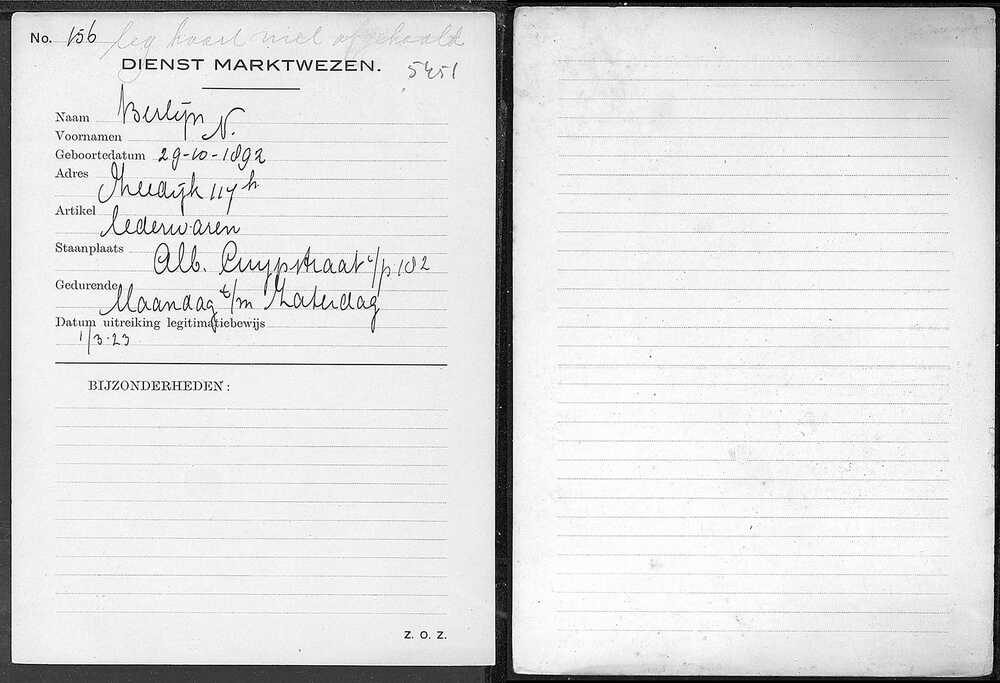 No. 156 leg kaart niet afgehaald
DIENST MARKTWEZEN.
5451
Naam Berlijn
Voornamen N.
Geboortedatum 29-10-1892
Adres Zeedijk 117 h
Artikel lederwaren
Staanplaats Alb. Cuypstraat t/p 182
Gedurende Maandag t/m Zaterdag
Datum uitreiking legitimatiebewijs
1/3-23
BIJZONDERHEDEN:
Z. O. Z.